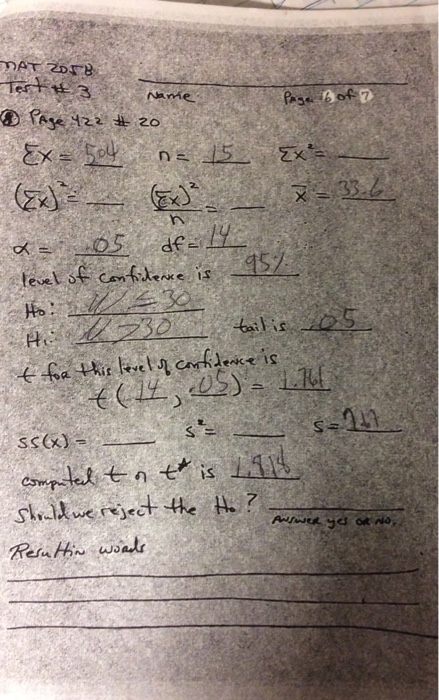 MAT 2058
Test # 3 Name Page 6 of 7
Page 422 # 20
Σx = 504 n = 15 Σx² =
(Σx)² = (Σx)²/n = x̄ = 33.6
α = .05 df = 14
level of confidence is 95%
Ho: ≤ 30
H₁: > 30 tail is .05
t for this level of confidence is
t(14, .05) = 1.761
ss(x) = s² = s =
computed t or t* is
Should we reject the Ho?
Answer yes or no.
Result in words